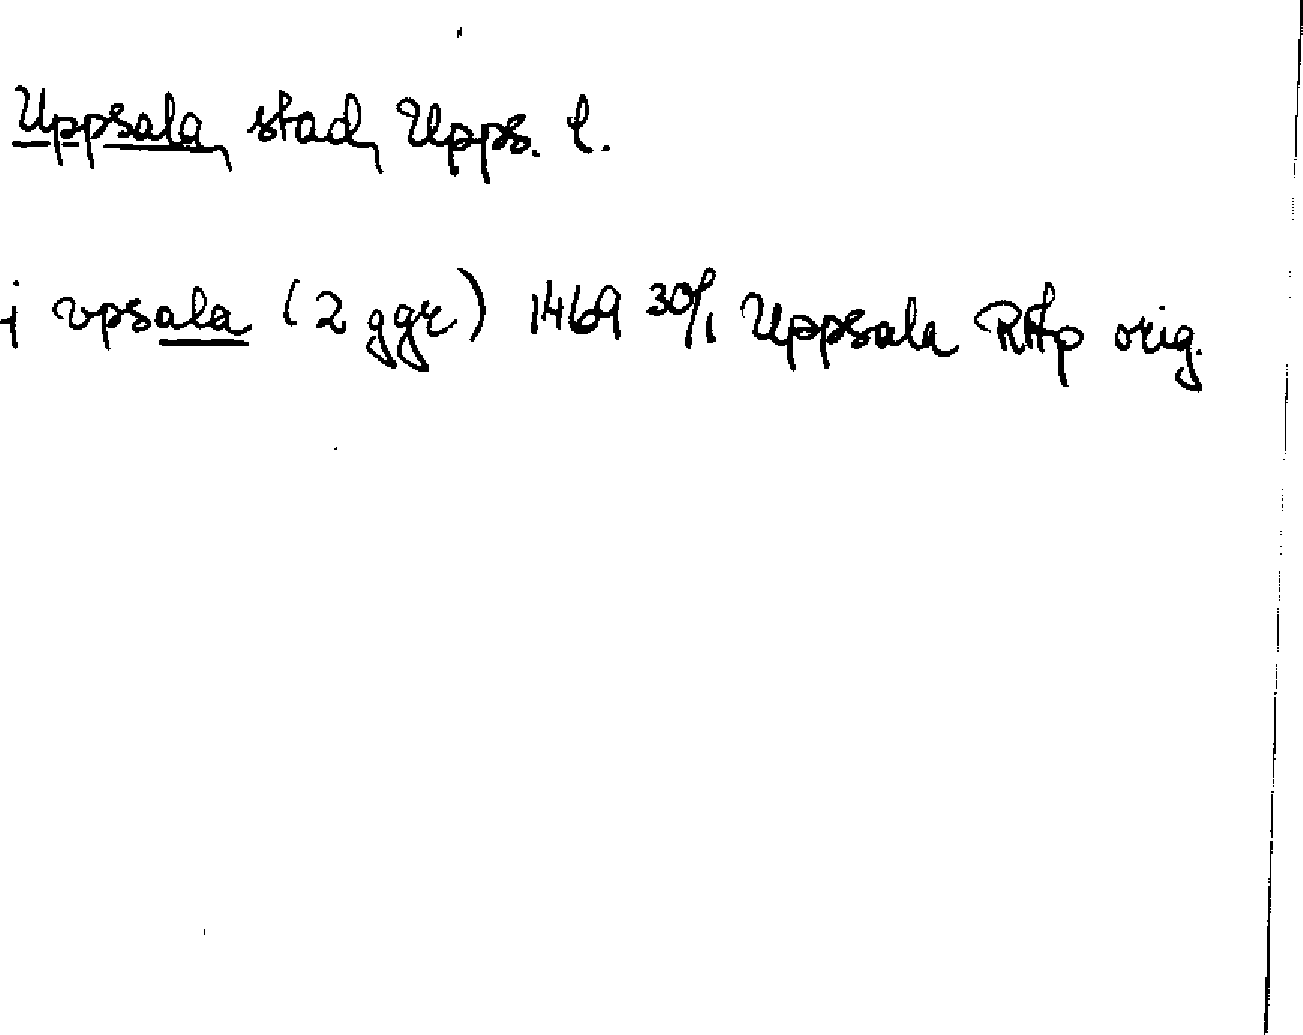 Uppsala, stad, Upps. l.
j vpsala (2 ggr) 1469 30/1 Uppsala RAp orig.